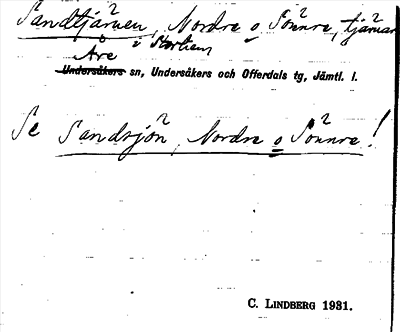 Sandtjärnen, Nordre o Sönnre, tjärnar
Åre i Storlien
Undersåkers sn, Undersåkers och Offerdals tg, Jämtl. l.
Se Sandsjön, Nordre o Sönnre!
C. LINDBERG 1931.